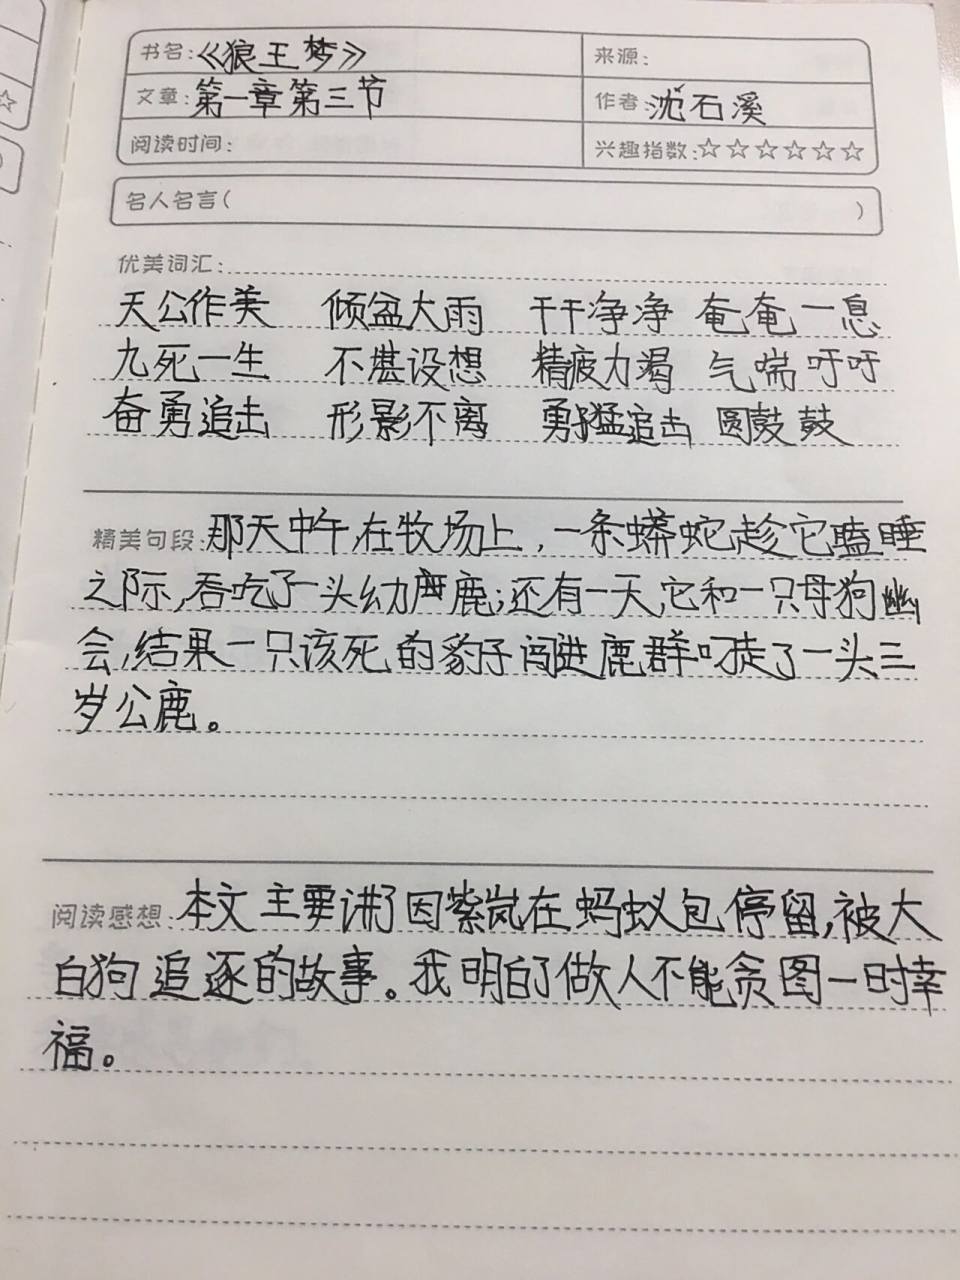 书名:《狼王梦》 来源:
文章:第一章第三节 作者:沈石溪
阅读时间: 兴趣指数:☆☆☆☆☆☆
名人名言( )
优美词汇:
天公作美 倾盆大雨 干干净净 奄奄一息
九死一生 不堪设想 精疲力竭 气喘吁吁
奋勇追击 形影不离 勇猛追击 圆鼓鼓
精美句段:那天中午,在牧场上,一条蟒蛇趁它瞌睡
之际,吞吃了一头幼鹿;还有一天,它和一只母狗幽
会,结果一只该死的豹子闯进鹿群叼走了一头三
岁公鹿。
阅读感想:本文主要讲了因紫岚在蚂蚁包停留,被大
白狗追逐的故事。我明白了做人不能贪图一时幸
福。